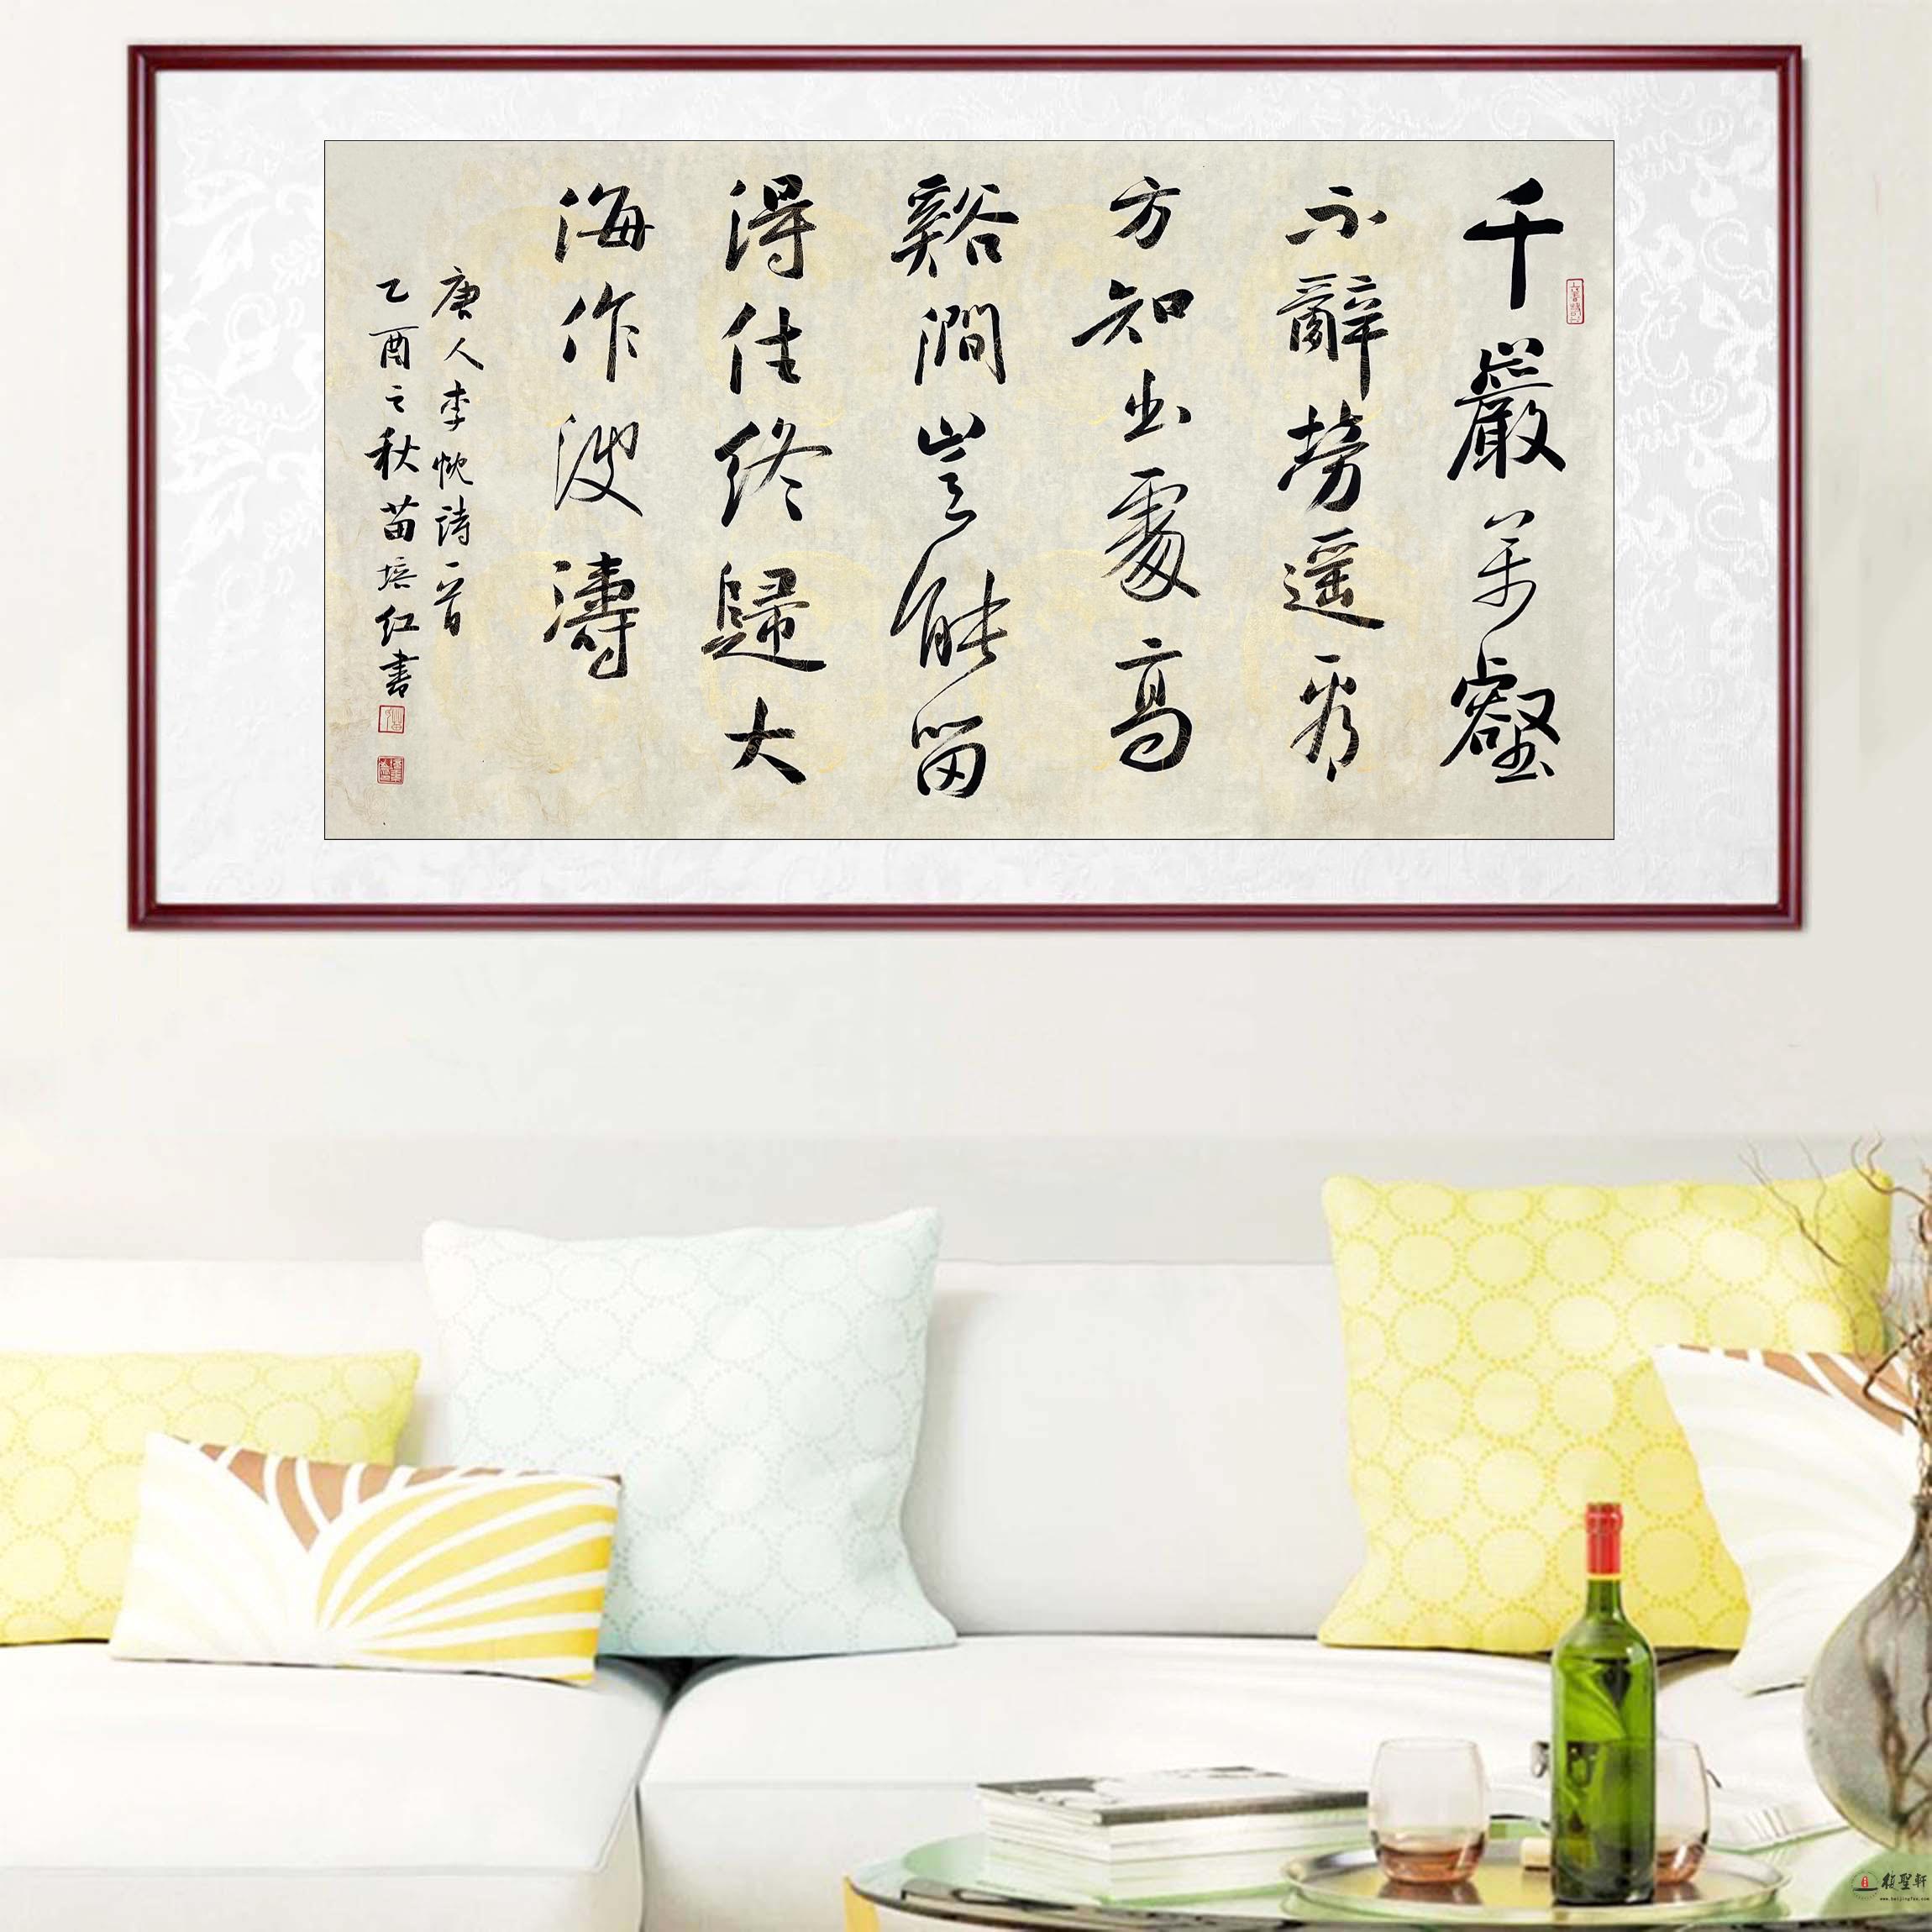 千巖萬壑
不辭勞遥看
方知出處高
谿澗豈能留
得住終歸大
海作波濤
唐人李忱詩一首
乙酉之秋苗培红書
www.baijingfan.com